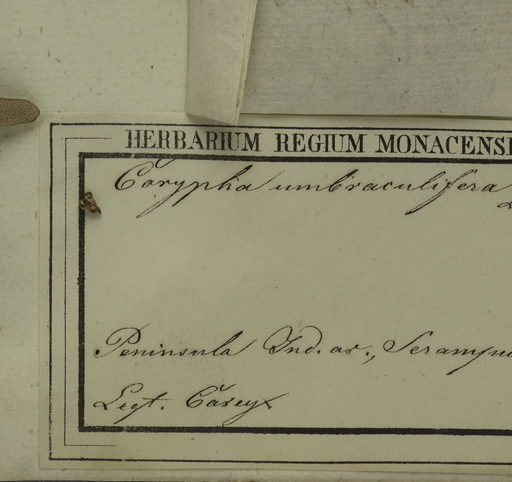 HERBARIUM REGIUM MONACENSI
Corypha umbraculifera
Peninsula Ind. or., Serampu
Legt. Carey